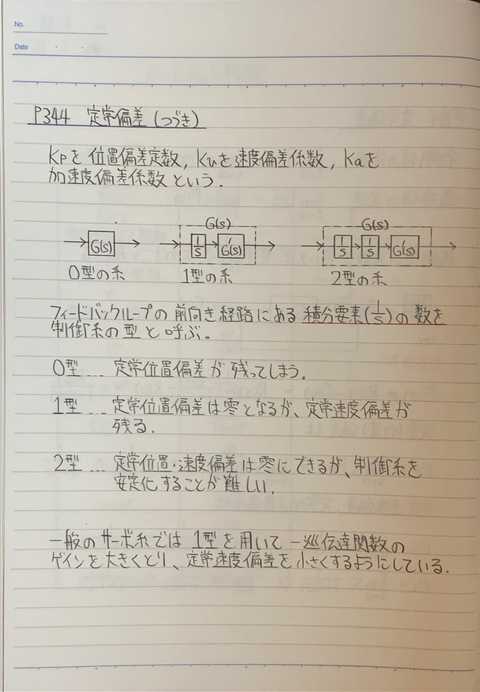 No.
Date
P344 定常偏差(つづき)
Kpを位置偏差定数, Kuを速度偏差係数, Kaを
加速度偏差係数という.
G(s) G(s)
G(s) 1/S G'(s) 1/S 1/S G'(s)
0型の系 1型の系 2型の系
フィードバックループの前向き経路にある積分要素(1/S)の数を
制御系の型と呼ぶ。
0型 … 定常位置偏差が残ってしまう.
1型 … 定常位置偏差は零となるが、定常速度偏差が
残る.
2型 … 定常位置・速度偏差は零にできるが、制御系を
安定化することが難しい.
一般のサーボ系では1型を用いて一巡伝達関数の
ゲインを大きくとり、定常速度偏差を小さくするようにしている.